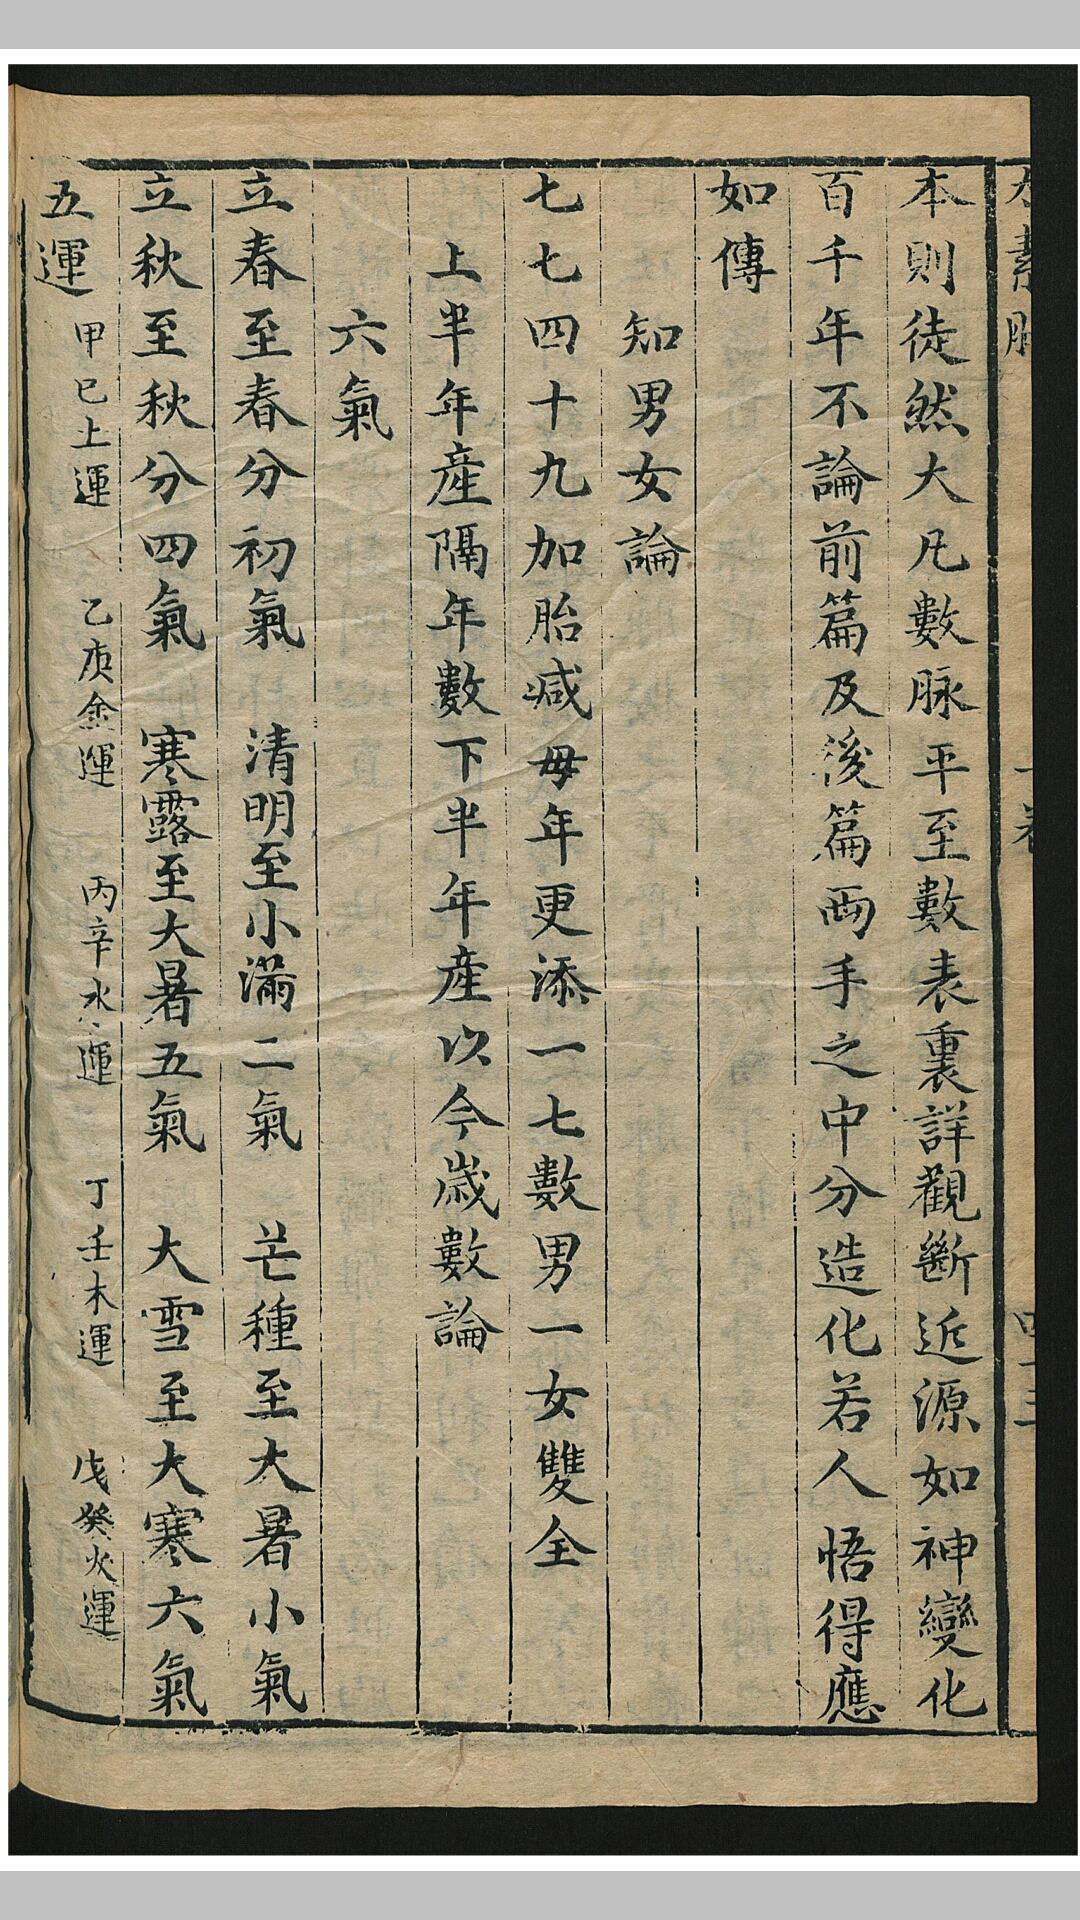 本則徒然大凡數脉平至數表裏詳觀斷近源如神變化
百千年不論前篇及後篇両手之中分造化若人悟得應
如傳
知男女論
七七四十九加胎减毋年更添一七數男一女雙全
上半年産隔年數下半年産以今歲數論
六氣
立春至春分初氣 清明至小滿二氣 芒種至大暑小氣
立秋至秋分四氣 寒露至大暑五氣 大雪至大寒六氣
五運 甲巳土運 乙庚金運 丙辛水運 丁壬木運 戊癸火運